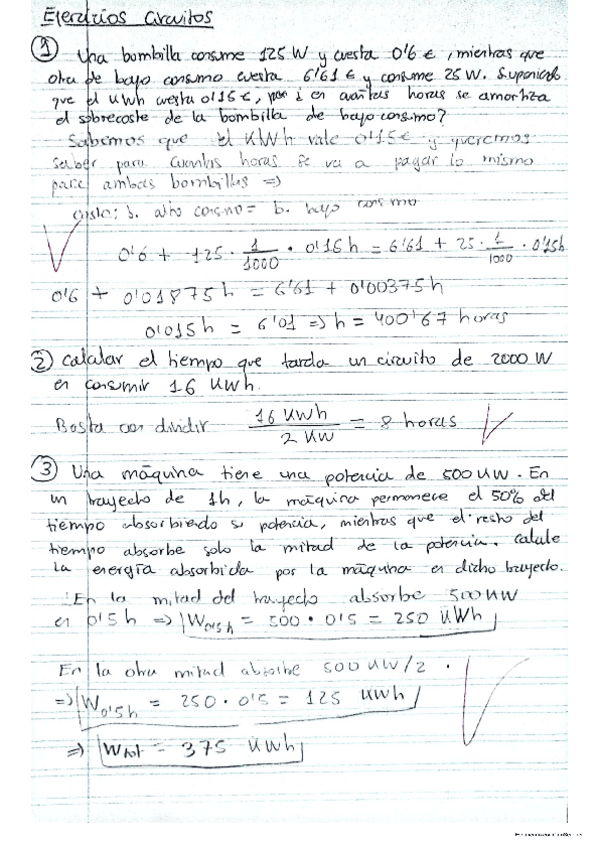 Ejercicios Circuitos
① Una bombilla consume 125 W y cuesta 0'6 €, mientras que
otra de bajo consumo cuesta 6'61 € y consume 25 W. Suponiendo
que el kWh cuesta 0'15 €, en cuántas horas se amortiza
el sobrecoste de la bombilla de bajo consumo?
Sabemos que el kWh vale 0'15 € y queremos
saber para cuantas horas se va a pagar lo mismo
para ambas bombillas =>
coste: b. alto consumo = b. bajo consumo
0'6 + 125 · 1/1000 · 0'15h = 6'61 + 25 · 1/1000 · 0'15h
0'6 + 0'01875h = 6'61 + 0'00375h
0'015h = 6'01 => h = 400'67 horas
② Calcular el tiempo que tarda un circuito de 2000 W
en consumir 16 kWh.
Basta con dividir 16 kWh / 2 kW = 8 horas
③ Una máquina tiene una potencia de 500 kW. En
un trayecto de 1h, la máquina permanece el 50% del
tiempo absorbiendo su potencia, mientras que el resto del
tiempo absorbe solo la mitad de la potencia. Calcule
la energía absorbida por la máquina en dicho trayecto.
En la mitad del trayecto absorbe 500 kW
en 0'5 h => W0'5h = 500 · 0'5 = 250 kWh
En la otra mitad absorbe 500 kW/2
=> W0'5h = 250 · 0'5 = 125 kWh
=> Wtot = 375 kWh